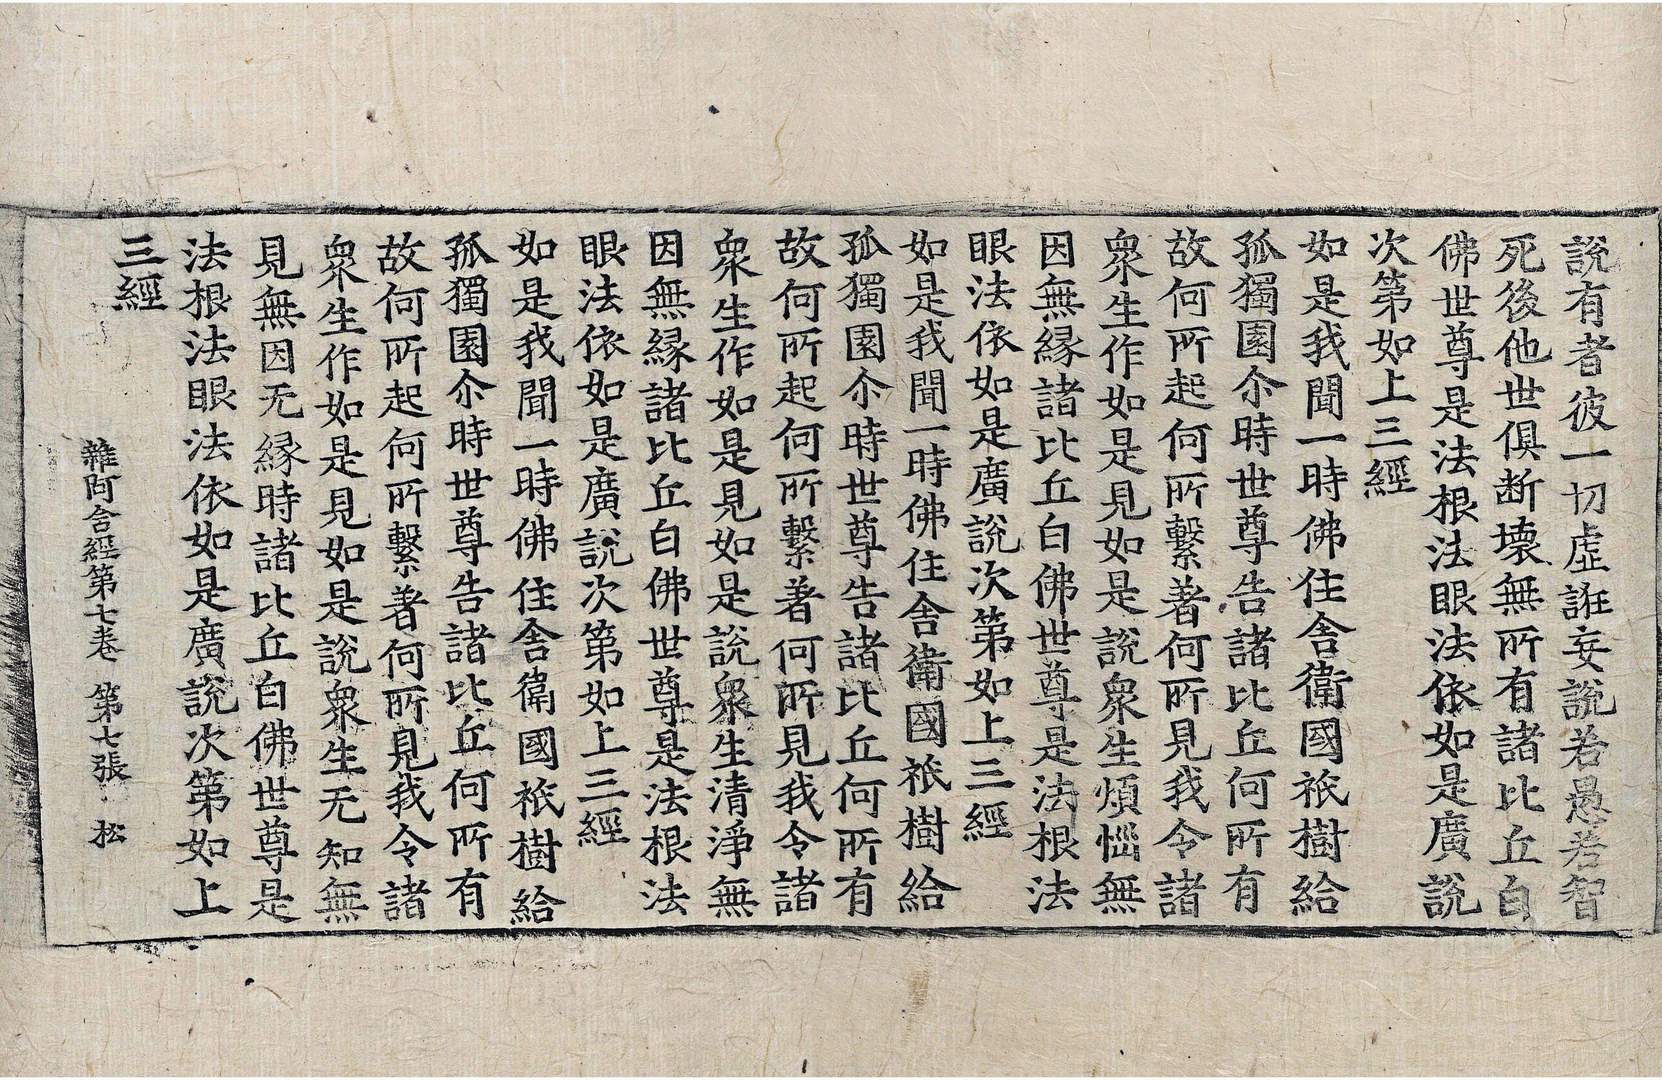 說有者彼一切虛誑妄說若愚若智
死後他世俱断壞無所有諸比丘白
佛世尊是法根法眼法依如是廣說
次第如上三經
如是我聞一時佛住舍衛國祇樹給
孤獨園尒時世尊告諸比丘何所有
故何所起何所繫著何所見我令諸
衆生作如是見如是說衆生煩惱無
因無緣諸比丘白佛世尊是法根法
眼法依如是廣說次第如上三經
如是我聞一時佛住舍衛國祇樹給
孤獨園尒時世尊告諸比丘何所有
故何所起何所繫著何所見我令諸
衆生作如是見如是說衆生清淨無
因無緣諸比丘白佛世尊是法根法
眼法依如是廣說次第如上三經
如是我聞一時佛住舍衛國祇樹給
孤獨園尒時世尊告諸比丘何所有
故何所起何所繫著何所見我令諸
衆生作如是見如是說衆生无知無
見無因无緣時諸比丘白佛世尊是
法根法眼法依如是廣說次第如上
三經
雜阿含經第七卷 第七張 松